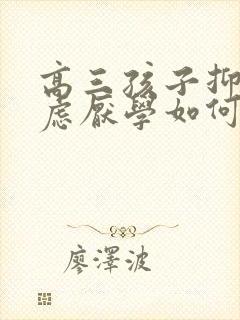 高三孩子抑
虑厌學如何
廖澤波